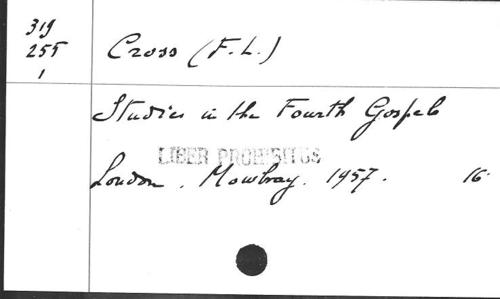 319
255
1
Cross (F.L.)
Studies in the Fourth Gospel
LIBER PROHIBITUS
London. Mowbray. 1957. 16